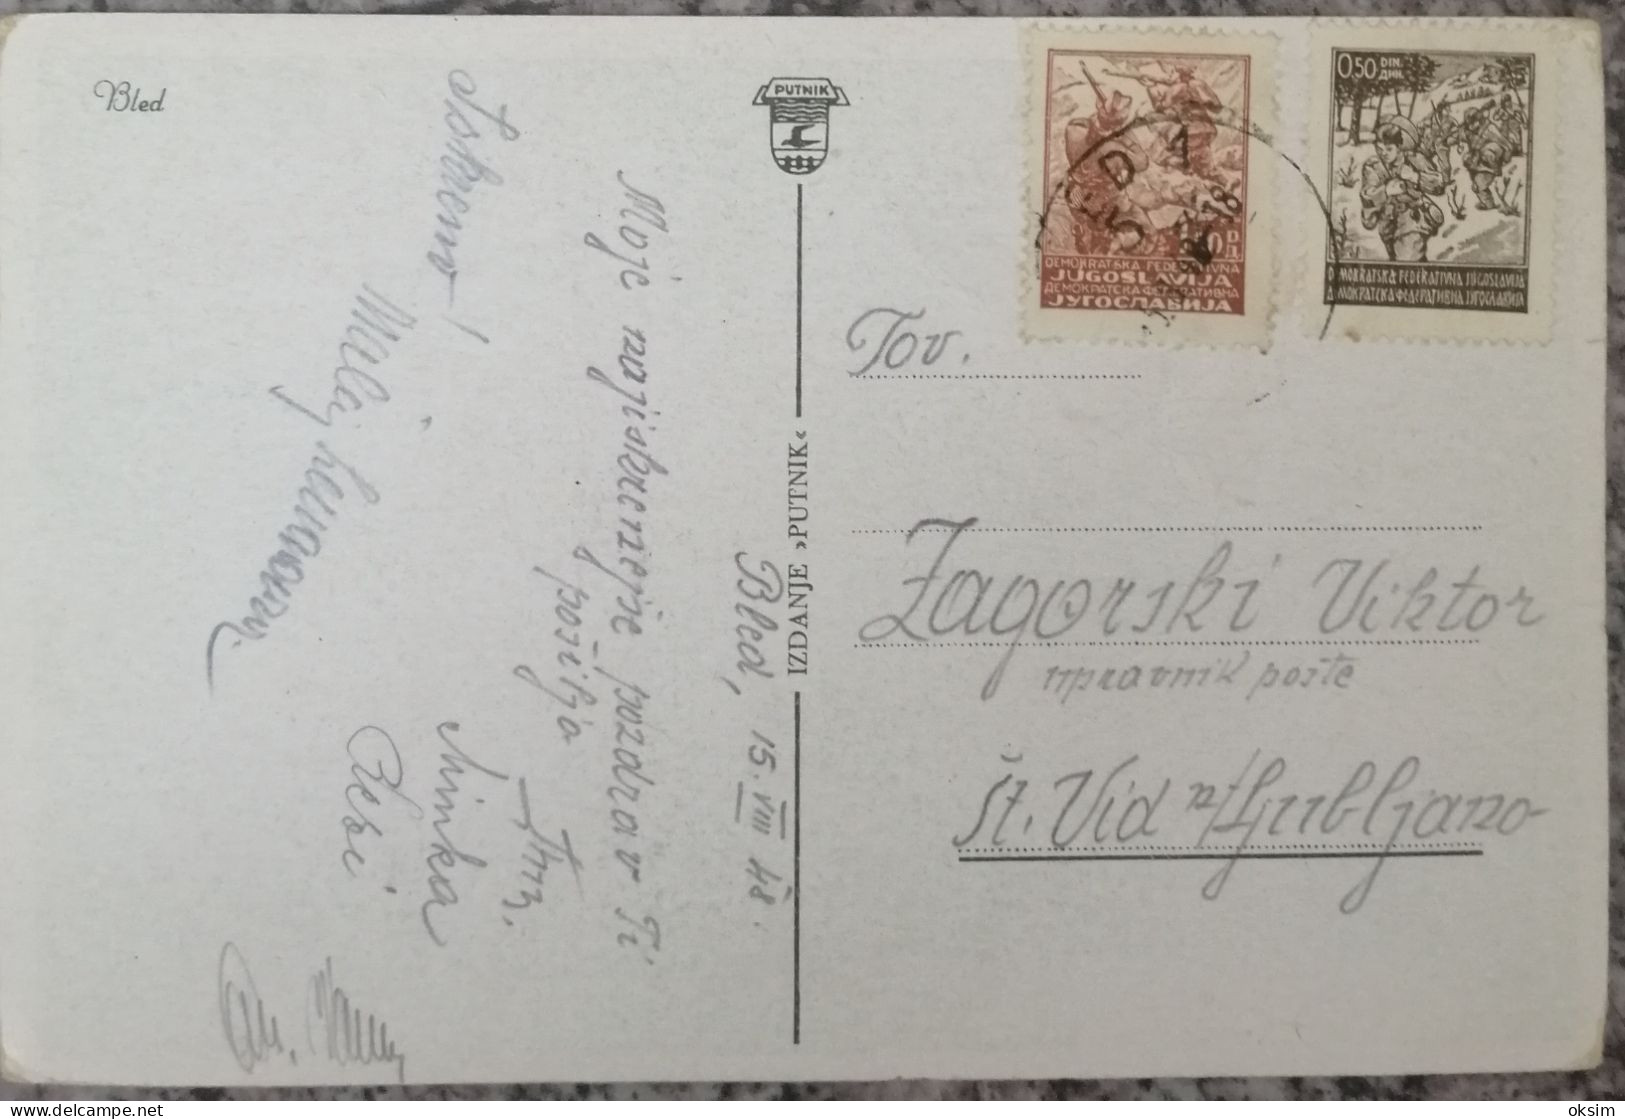 Bled
Iskreno!
Bled, 15. VIII 48.
Moje najiskrenejše pozdrave Ti
pošilja
Minka
PUTNIK
IZDANJE »PUTNIK«
DEMOKRATSKA FEDERATIVNA
JUGOSLAVIJA
ДЕМОКРАТСКА ФЕДЕРАТИВНА
ЈУГОСЛАВИЈА
0.50 DIN.
ДИН.
DEMOKRATSKA FEDERATIVNA JUGOSLAVIJA
ДЕМОКРАТСКА ФЕДЕРАТИВНА ЈУГОСЛАВИЈА
Tov.
Zagorski Viktor
upravnik pošte
Št. Vid n/Ljubljano
oksim